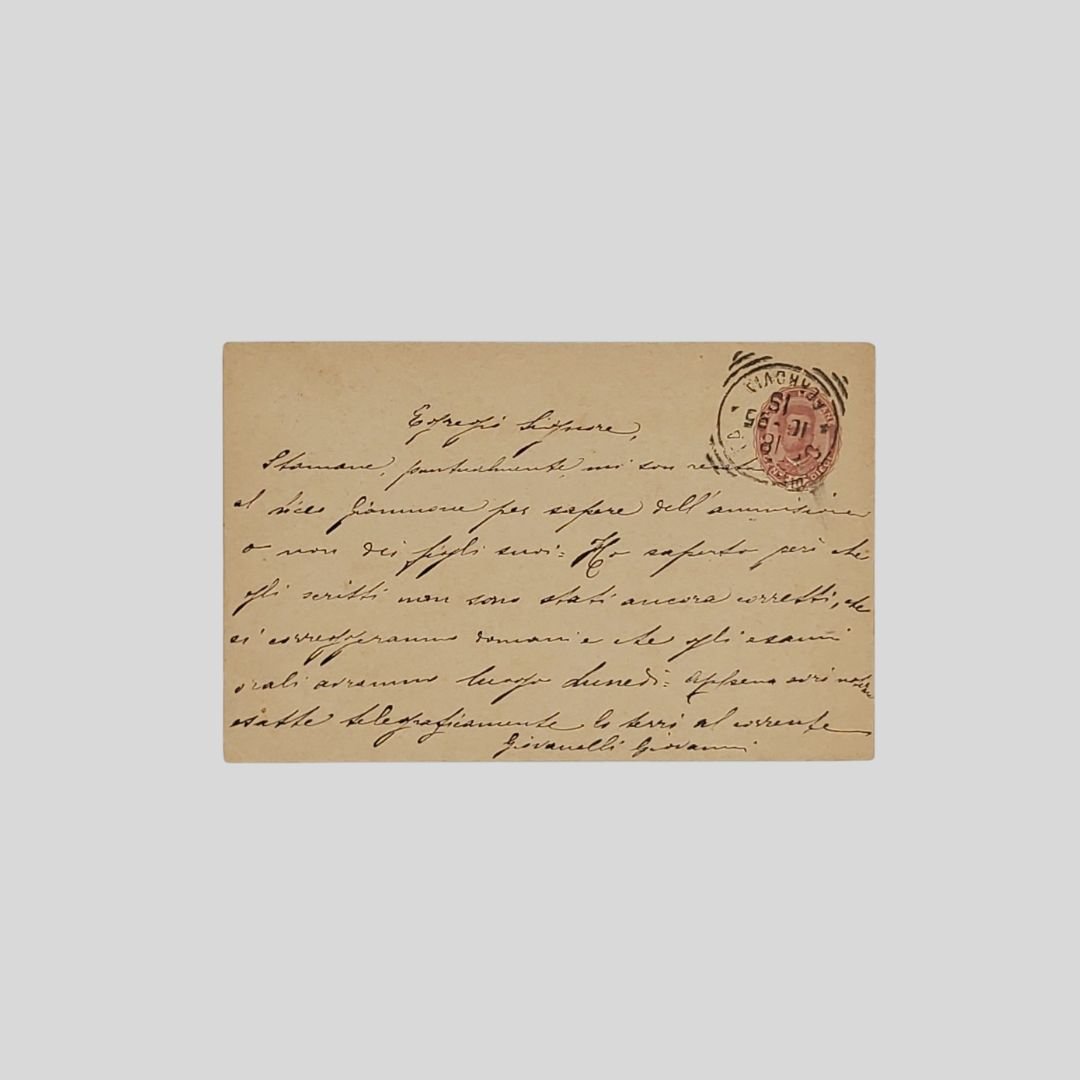 Egregio Signore,
Stamane, puntualmente, mi son recato
al liceo Giannone per sapere dell'ammissione
o non dei figli suoi = Ho saputo però che
gli scritti non sono stati ancora corretti, che
si correggeranno domani e che gli esami
orali avranno luogo Lunedì = Appena avrò notizie
esatte telegraficamente la terrò al corrente
Giovanelli Giovanni